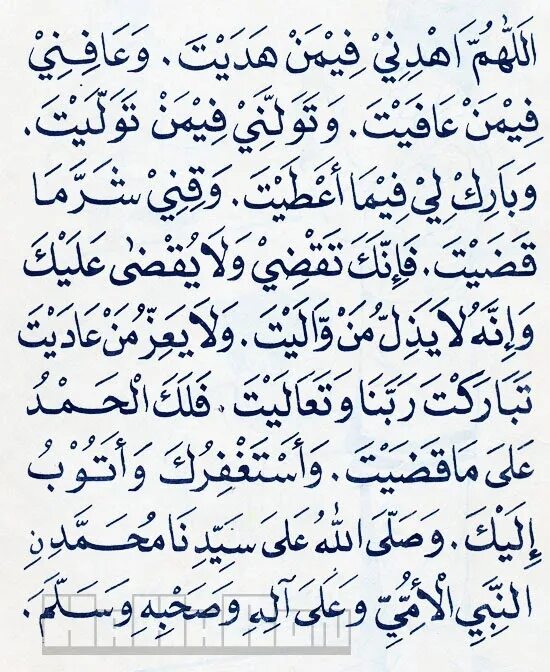 اَللّٰهُمَّ اهْدِنِيْ فِيْمَنْ هَدَيْتَ. وَعَافِنِيْ
فِيْمَنْ عَافَيْتَ. وَتَوَلَّنِيْ فِيْمَنْ تَوَلَّيْتَ.
وَبَارِكْ لِيْ فِيْمَا أَعْطَيْتَ. وَقِنِيْ شَرَّمَا
قَضَيْتَ. فَإِنَّكَ تَقْضِيْ وَلَا يُقْضٰى عَلَيْكَ
وَإِنَّهُ لَا يَذِلُّ مَنْ وَّالَيْتَ. وَلَا يَعِزُّ مَنْ عَادَيْتَ
تَبَارَكْتَ رَبَّنَا وَتَعَالَيْتَ. فَلَكَ الْحَمْدُ
عَلَى مَا قَضَيْتَ. وَأَسْتَغْفِرُكَ وَأَتُوْبُ
إِلَيْكَ. وَصَلَّى اللّٰهُ عَلَى سَيِّدِنَا مُحَمَّدِنِ
النَّبِيِ الْأُمِّيِّ وَعَلَى آلِهِ وَصَحْبِهِ وَسَلَّمَ.